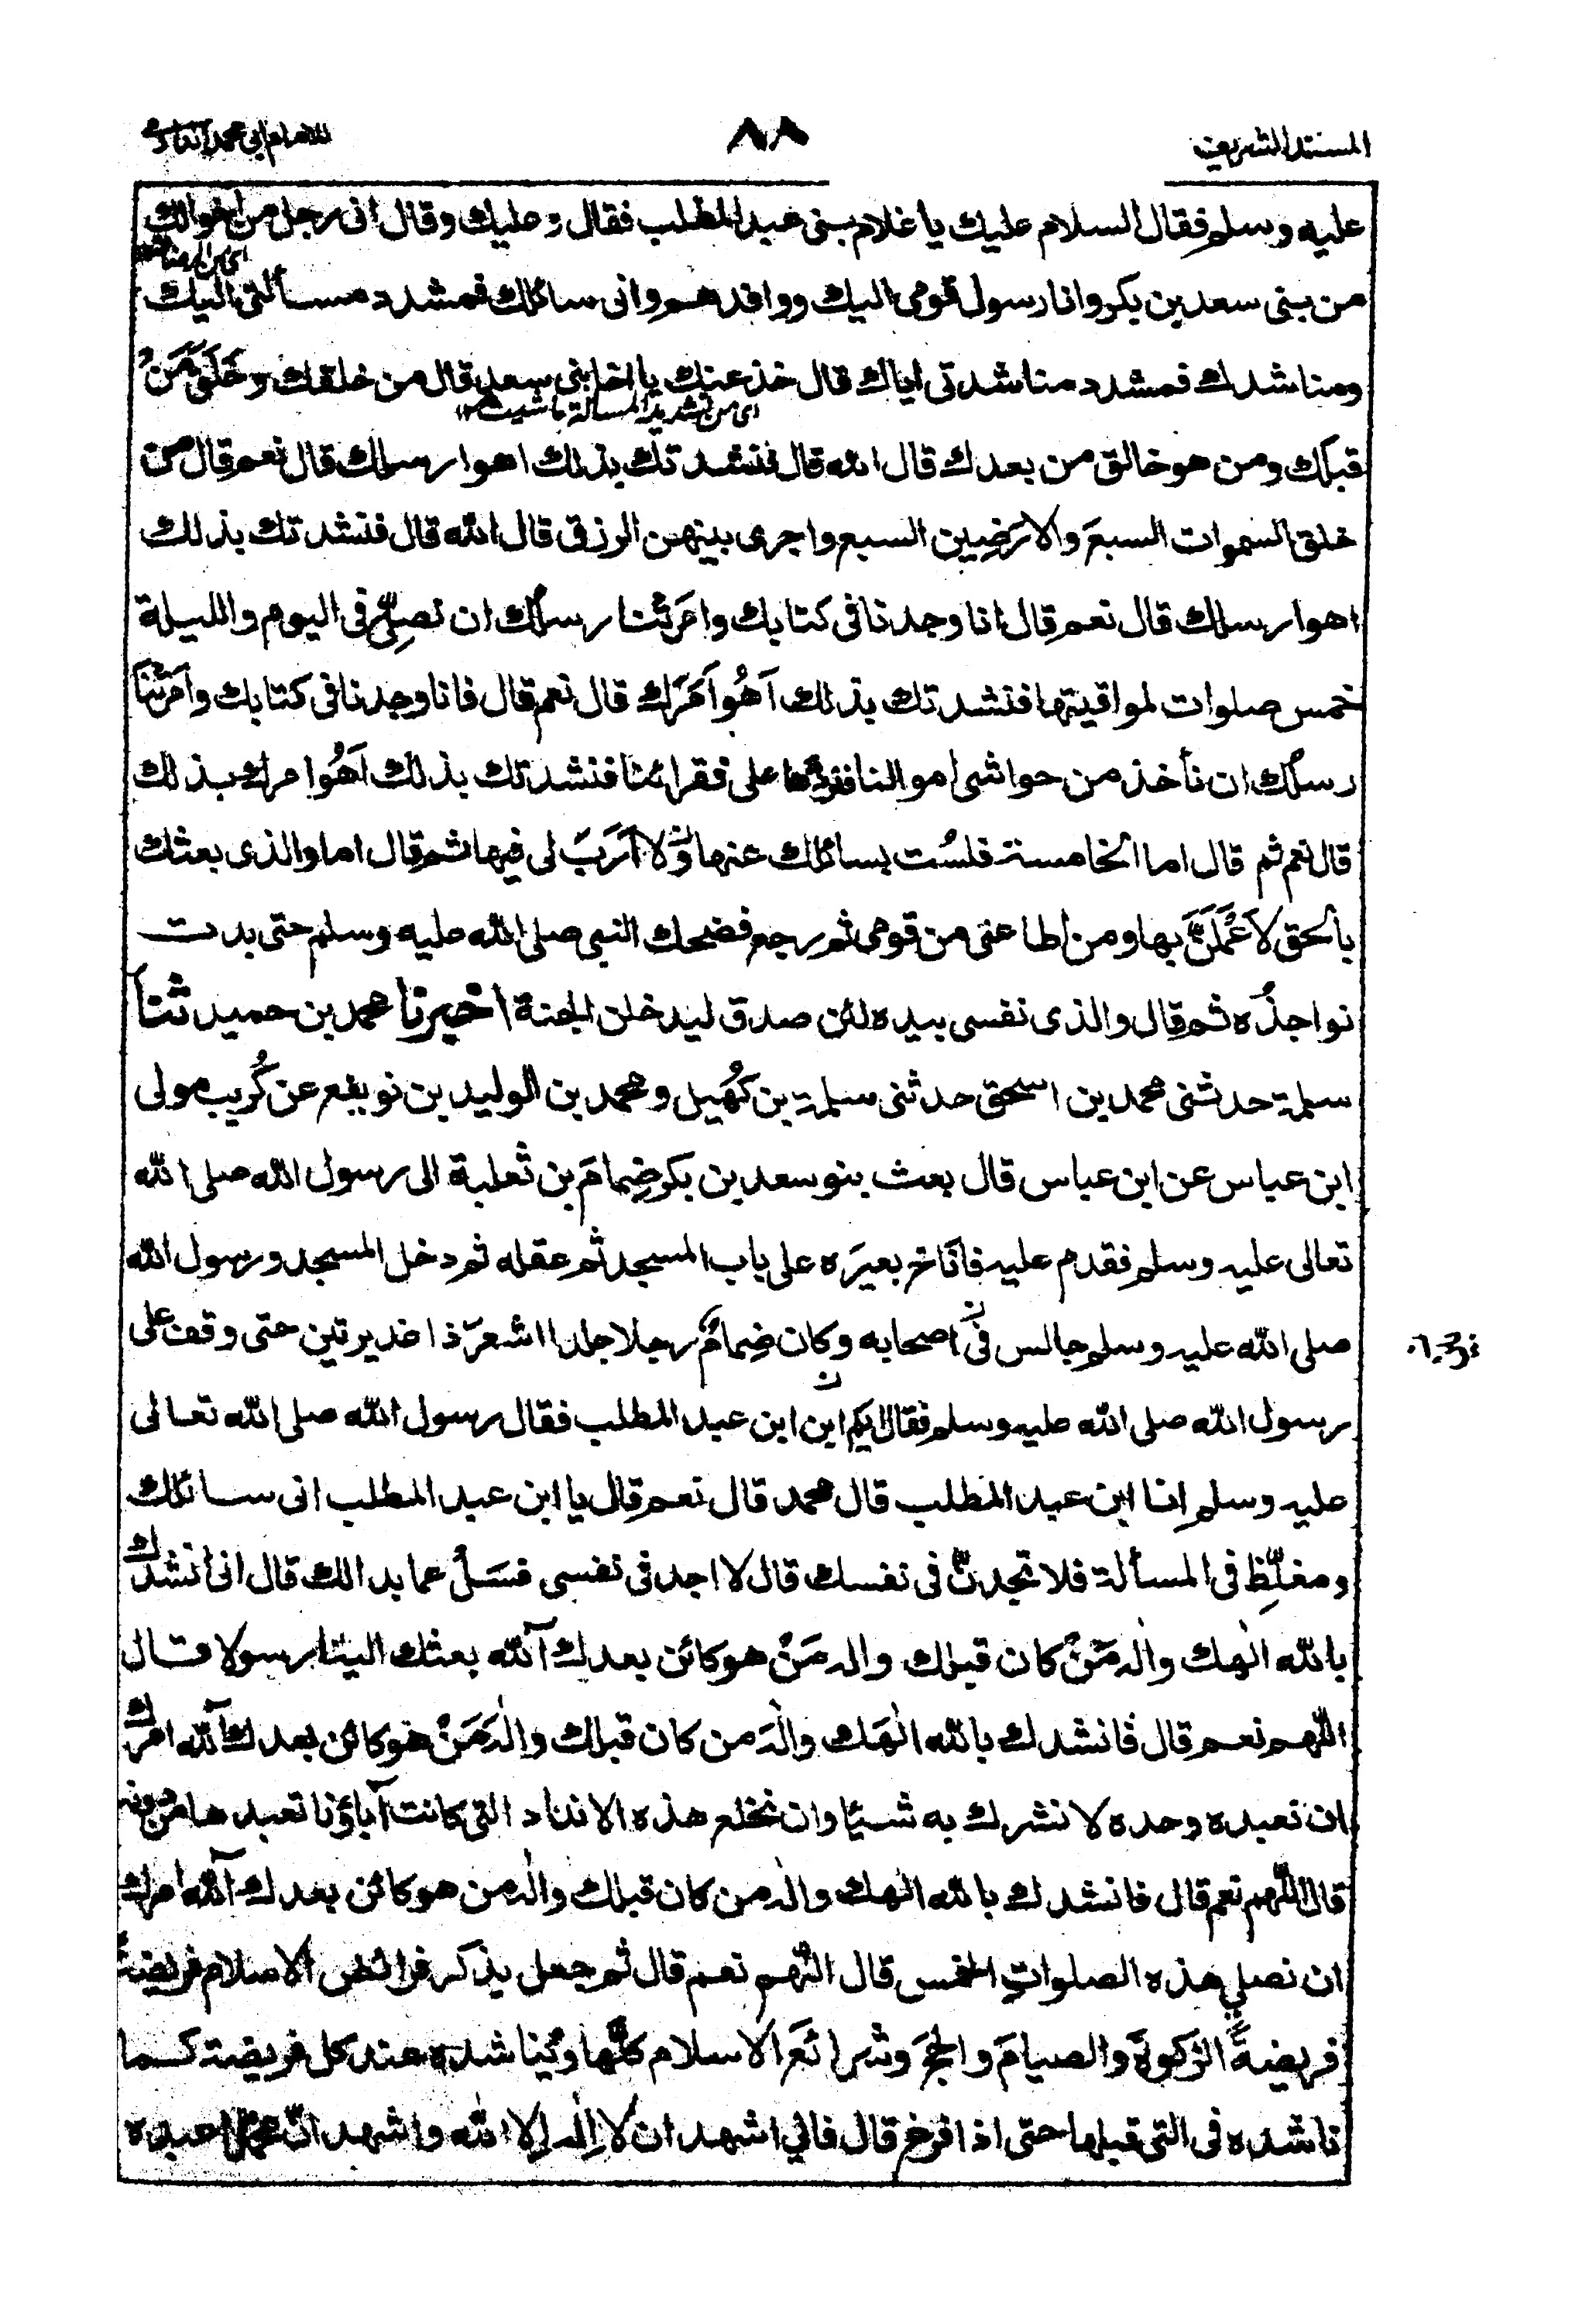 المسند الشريف
٨٨
للامام ابى محمد الدارمى
عليه وسلم فقال السلام عليك يا غلام بنى عبد المطلب فقال وعليك وقال انى رجل من اخوالك
من بنى سعد بن بكر وانا رسول قومى اليك ووافدهم وانى سائلك فمشدد مسألتى اليك
ومناشدك فمشدد مناشدتى اياك قال خذ عنك يا اخا بنى سعد قال من خلقك وخَلَقَ مَنْ
اى من تشديد المسالة ما شيت ١٢
قبلك ومن هو خالق من بعدك قال الله قال فنشدتك بذلك اهو ارسلك قال نعم قال من
خلق السموات السبعَ والارَضِين السبع واجرى بينهن الرزق قال الله قال فنشدتك بذلك
اهو ارسلك قال نعم قال انا وجدنا فى كتابك وامَرَتْنا رسلُك ان نصلِّى فى اليوم والليلة
خمس صلوات لمواقيتها فنشدتك بذلك اَهُو اَمَرَك قال نعم قال فانا وجدنا فى كتابك وامَرَتْنَا
رسلُك ان نأخذ من حواشى اموالنا فنردها على فقرائنا فنشدتك بذلك اَهُو امرك بذلك
قال نعم ثم قال اما الخامسة فلسْت بسائلك عنها ولا اَرَبَ لى فيها ثم قال اما والذى بعثك
بالحق لاَعْمَلَنَّ بها ومن اطاعنى من قومى ثم رجع فضحك النبى صلى الله عليه وسلم حتى بدت
نواجذُه ثم قال والذى نفسى بيده لئن صدق ليدخلن الجنة اخبرنا محمد بن حميد ثنا
سلمة حدثنى محمد بن اسحق حدثنى سلمة بن كُهَيل ومحمد بن الوليد بن نويفع عن كُريب مولى
ابن عباس عن ابن عباس قال بعث بنو سعد بن بكر ضِمامَ بن ثعلبة الى رسول الله صلى الله
تعالى عليه وسلم فقدم عليه فاَناخ بعيرَه على باب المسجد ثم عقله ثم دخل المسجد ورسول الله
صلى الله عليه وسلم جالس فى اصحابه وكان ضِمامٌ رجلا جلدا اشعرَ ذا غديرتين حتى وقف على
رسول الله صلى الله عليه وسلم فقال ايكم ابن ابن عبد المطلب فقال رسول الله صلى الله تعالى
عليه وسلم انا ابن عبد المطلب قال محمد قال نعم قال يا ابن عبد المطلب انى سائلك
ومغلِّظ فى المسألة فلا تجدنَّ فى نفسك قال لا اجد فى نفسى فسَلْ عما بدالك قال انى انشدك
بالله الٰهك والٰه مَنْ كان قبلك واله مَنْ هو كائن بعدك آلله بعثك الينا رسولا قال
اللّهم نعم قال فانشدك بالله الٰهَك والٰهَ من كان قبلك والٰهَ مَنْ هو كائن بعدك آلله امرك
ان نعبده وحده لا نشرك به شيئا وان نخلع هذه الانداد التى كانت آباؤنا تعبدها من دونه
قال اللّهم نعم قال فانشدك بالله الٰهك والٰه من كان قبلك والٰه من هو كائن بعدك آلله امرك
ان نصلى هذه الصلواتِ الخمس قال اللّهم نعم قال ثم جعل يذكر فرائض الاسلام فريضةً
فريضةً الزكوةَ والصيامَ والحجَ وشرائعَ الاسلام كلَّها ويُناشده عند كل فريضة كما
ناشده فى التى قبلها حتى اذا فرغ قال فانى اشهد ان لا اله الا الله واشهد انّ محمدا عبده